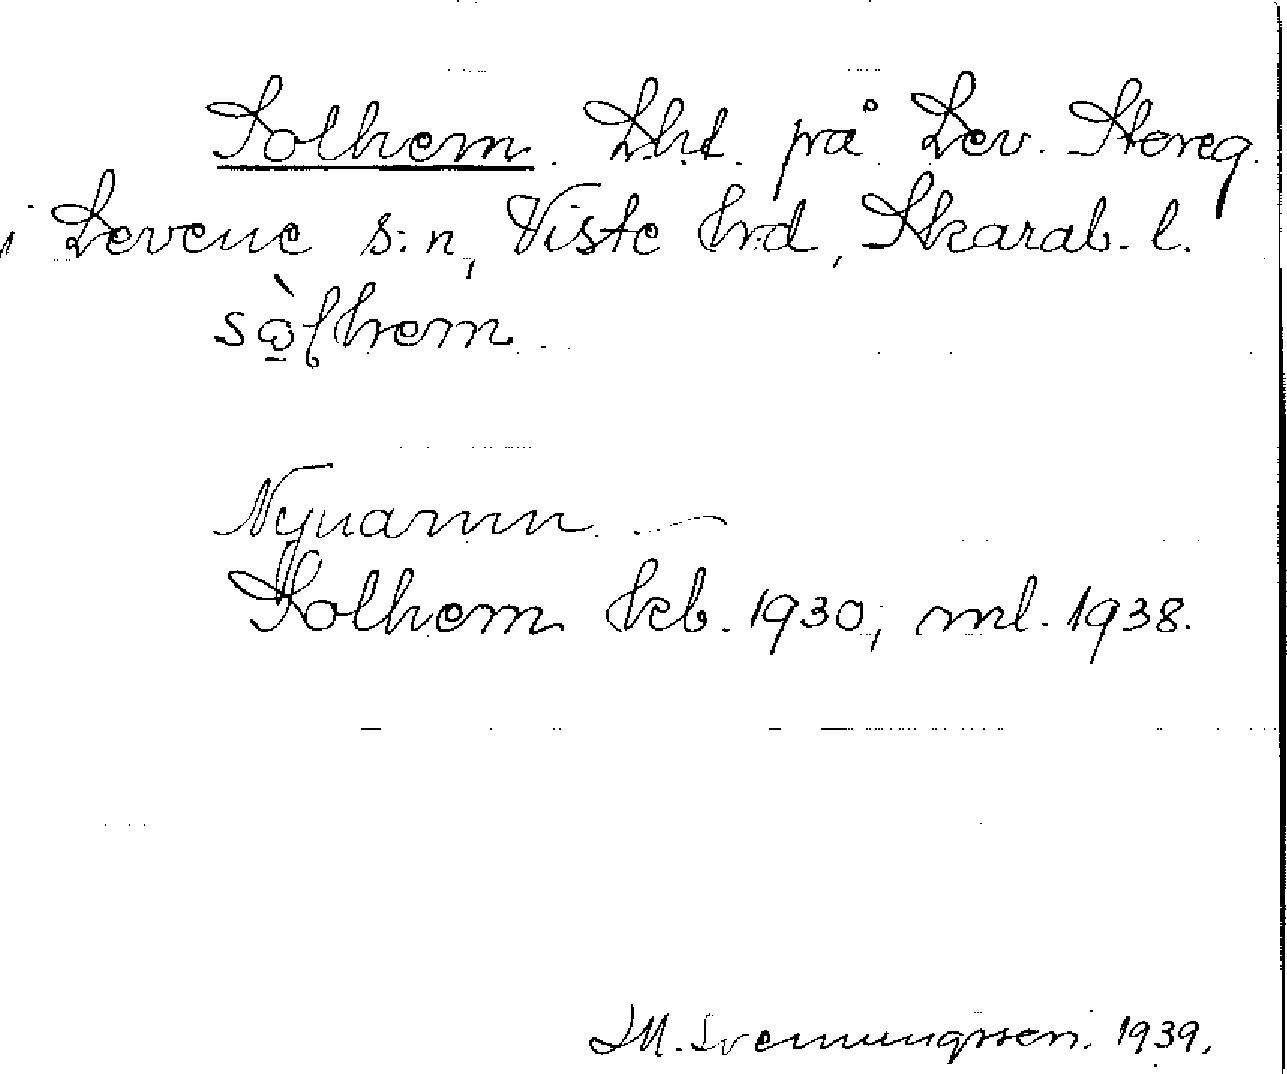 Solhem. Lht. på Lev. Storeg.
i Levene s:n, Viste hrd, Skarab. l.
sὼlhem
Nynamn.
Solhem kb. 1930, ml. 1938.
M. Svenungsson. 1939.